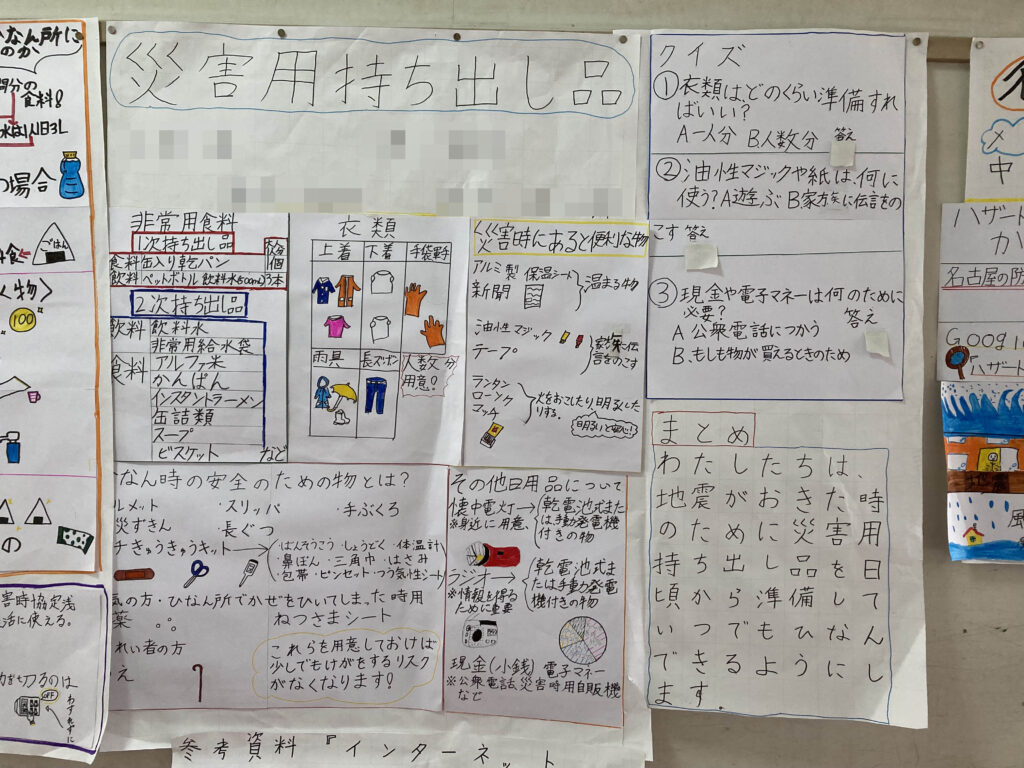 災害用持ち出し品
非常用食料
1次持ち出し品
食料 缶入り乾パン
飲料 ペットボトル 飲料水(500mL)3本
2次持ち出し品
飲料 飲料水
非常用給水袋
食料 アルファ米
かんぱん
インスタントラーメン
缶詰類
スープ
ビスケット
など
衣類
上着 下着 手袋軍手
雨具 長ズボン 人数分
用意!
災害時にあると便利な物
アルミ製 保温シート
新聞
温まる物
油性マジック
テープ
家族に伝
言をのこす
ランタン
ローソク
マッチ
火をおこたり、明るくした
りする。
明るいと安心!
なん時の安全のための物とは?
ルメット ・スリッパ ・手ぶくろ
災ずきん ・長ぐつ
きゅうきゅうキット
・ばんそうこう・しょうどく・体温計
・鼻ぽん・三角巾・はさみ
・包帯・ピンセット・つう気性シート
気の方・ひなん所でかぜをひいてしまった時用
薬 ねつさまシート
れい者の方
え
これらを用意しておけば
少しでもけがをするリスク
がなくなります!
その他日用品について
懐中電灯→
※身近に用意、
乾電池式また
は手動発電機
付きの物
ラジオ→
※情報を得る
ために重要
乾電池式ま
たは手動発電
機付きの物
現金(小銭) 電子マネー
※公衆電話、災害時用自販機
など
参考資料『インターネット
クイズ
①衣類は、どのくらい準備すれ
ばいい?
A一人分 B人数分 答え
②油性マジックや紙は、何に
使う?A遊ぶ B家族に伝言をの
こす 答え
③現金や電子マネーは何のために
必要? 答え
A 公衆電話につかう
B.もしも物が買えるときのため
まとめ
わたしたちは、
地震がおきた時
のために災害用
持ち出し品を日
頃から準備して
いつでもひなん
できるようにし
ます。
なん所に
のか
食料!
水は1人1日3L
の場合
ごはん
物>
100
の
害時協定浅
活に使える。
切るのは
OFF
わすれずに
中
ハザード
か
名古屋の防
Goog
ハザード
風